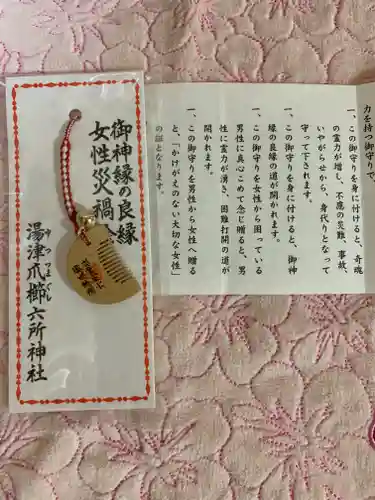 力を持つ御守りで、
一、この御守りを身に付けると、奇魂
の霊力が増し、不慮の災難、事故、
いやがらせから、身代りとなって
守って下されます。
一、この御守りを身に付けると、御神
縁の良縁の道が開かれます。
一、この御守りを女性から困っている
男性に真心こめて念じて贈ると、男
性に霊力が湧き、困難打開の道が
開かれます。
一、この御守りを男性から女性へ贈る
と、「かけがえのない大切な女性」
の証となります。
御神縁の良縁
女性災禍
湯津爪櫛六所神社
ゆつつまぐし